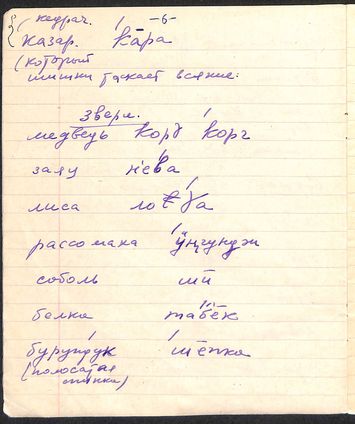 (кедрач. –6–
казар. ка́ра
(который
шишки таскает всякие.
звери.
медведь корɣ ко́рг
заяц не́ва
лиса лоɣа́
россомаха ӱ́ңгунджи
соболь шӣ
белка табе́к
бурундук ше́пка
(полосатая
спинка)